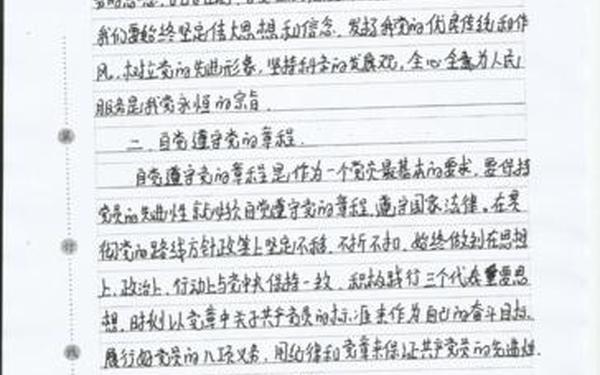 我们要始终坚定伟大思想和信念，发扬我党的优良传统和作
风，树立党的先进形象，坚持科学的发展观，全心全意为人民
服务是我党永恒的宗旨.
二、自觉遵守党的章程.
自觉遵守党的章程是作为一个党员最基本的要求，要保持
党员的先进性就必须自觉遵守党的章程，遵守国家法律。在贯
彻党的路线方针政策上坚定不移、不折不扣，始终做到在思想
上、政治上、行动上与党中央保持一致，积极践行三个代表重要思
想，时刻以党章中关于共产党员的标准来作为自己的奋斗目标，
履行好党员的八项义务，用纪律和党章来保证共产党员的先进性.